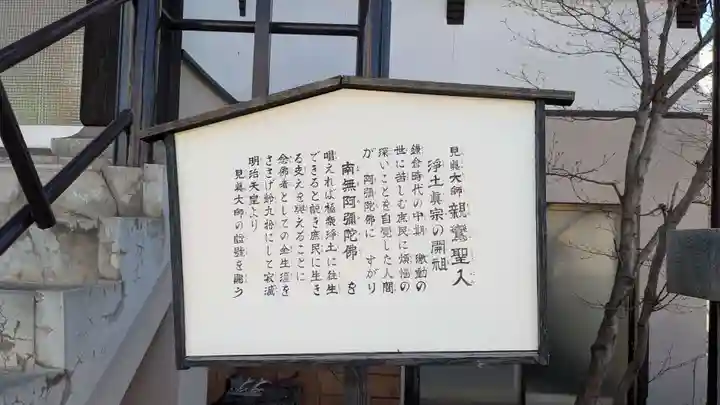 見眞大師 親鸞聖人
浄土眞宗の開祖
鎌倉時代の中期 激動の
世に苦しむ庶民に煩悩の
深いことを自覚した人間
が 阿彌陀佛に すがり
南無阿彌陀佛 を
唱えれば極楽浄土に往生
できると説き庶民に生き
る支えを與えることに
念佛者としての全生涯を
ささげ齢九拾にして寂滅
明治天皇より
見眞大師の諡號を賜う